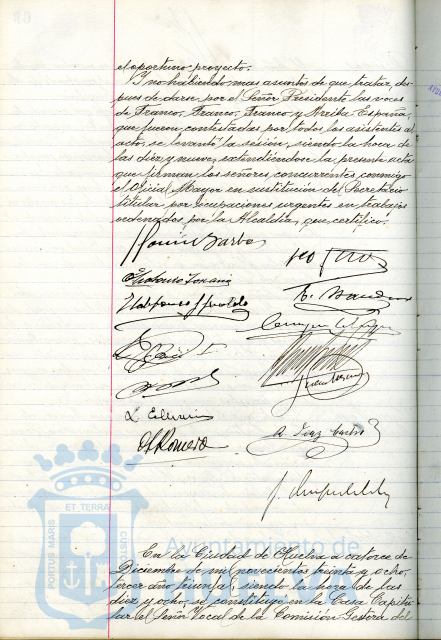 el oportuno proyecto.
Y no habiendo mas asuntos de que tratar, des-
pues de darse por el Señor Presidente las voces
de Franco, Franco, Franco y Arriba España,
que fueron contestadas por todos los asistentes al
acto, se levantó la sesión, siendo la hora de
las diez y nueve, extendiéndose la presente acta
que firman los señores concurrentes conmigo
el Oficial Mayor en sustitución del Secretario
titular por ocupaciones urgentes en trabajos
ordenados por la Alcaldía, que certifico.
Barba
Ildefonso
A. Diaz
Romero
PORTUS MARIS ET TERRA CUSTODIA
Ayuntamiento de
HUELVA
En la Ciudad de Huelva a catorce de
Diciembre de mil novecientos treinta y ocho,
tercer año triunfal, siendo la hora de las
diez y ocho, se constituyó en la Casa Capitu-
lar el Señor Vocal de la Comisión Gestora del